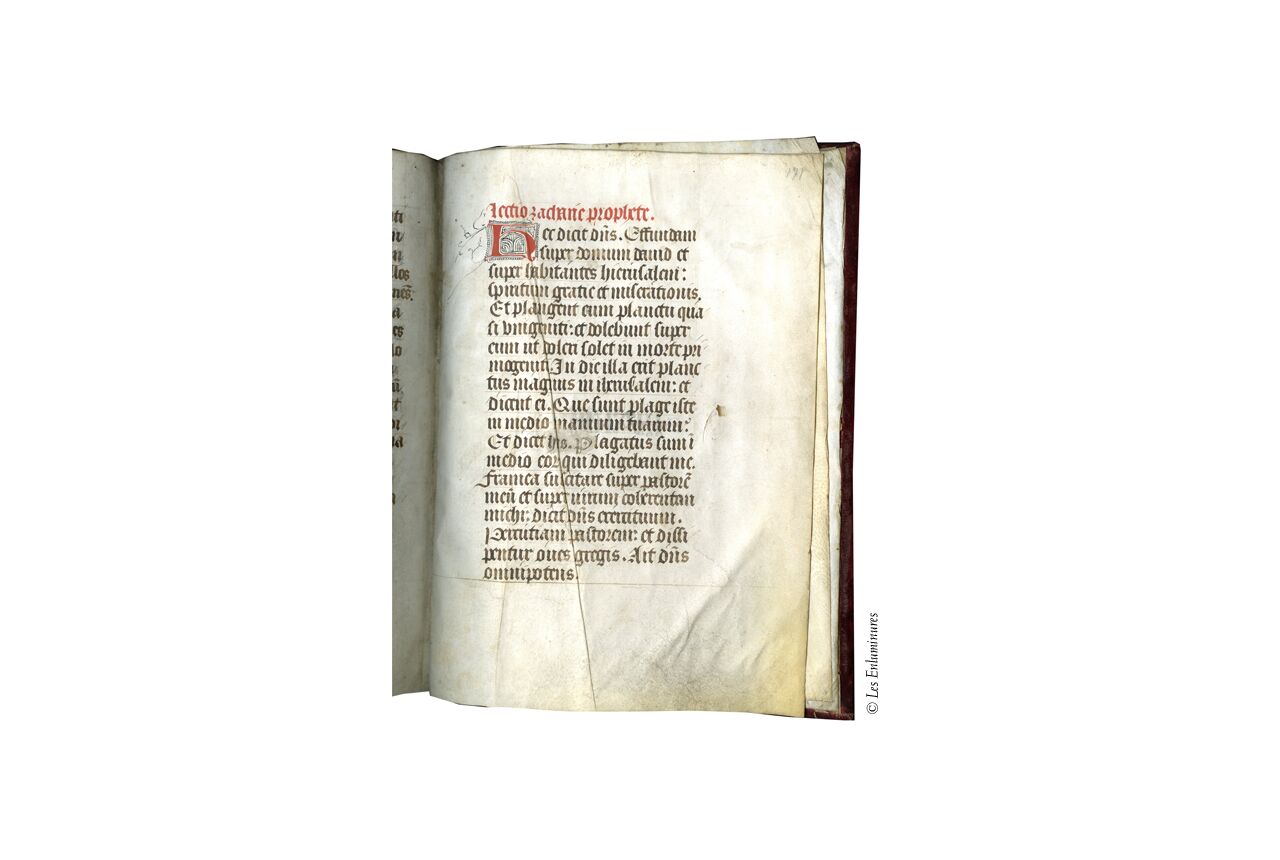 Lectio zacharie prophete.
Hec dicit dñs. Effundam
super domum dauid et
super habitantes hierusalem:
spiritum gratie et miserationis.
Et plangent eum planctu qua
si vnigeniti: et dolebunt super
eum ut doleri solet in morte pri
mogeniti. In die illa erit planc
tus magnus in iherusalem: et
dicent ei. Que sunt plage iste
in medio manuum tuarum:
Et dicet his. Plagatus sum ī
medio eor qui diligebant me.
Framea suscitare super pastorē
meū et super uirum coherentem
michi: dicit dñs exercituum.
Percutiam pastorem: et dissi
pentur oues gregis. Ait dñs
omnipotens.
ti
llos
es
lo
© Les Enluminures